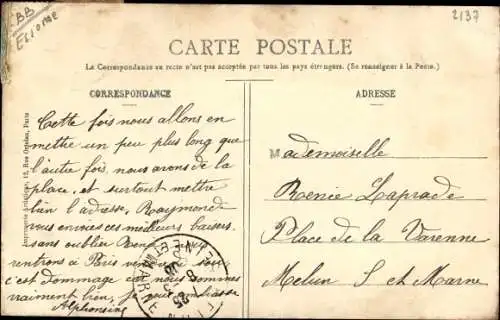 BB
Essome
2137
CARTE POSTALE
La Correspondance au recto n'est pas acceptée par tous les pays étrangers. (Se renseigner à la Poste.)
CORRESPONDANCE
ADRESSE
Cette fois nous allons en
mettre un peu plus long que
l'autre fois, nous avons de la
place, et surtout mettre
bien l'adresse, Raymond
vous envoies ces meilleurs baisers
sans oublier René nous
rentrons à Paris
c'est dommage car nous sommes
vraiment bien, je vous embrasse
Alphonsine
Mademoiselle
Renée Laprade
Place de la Varenne
Melun S et Marne
ET MARNE